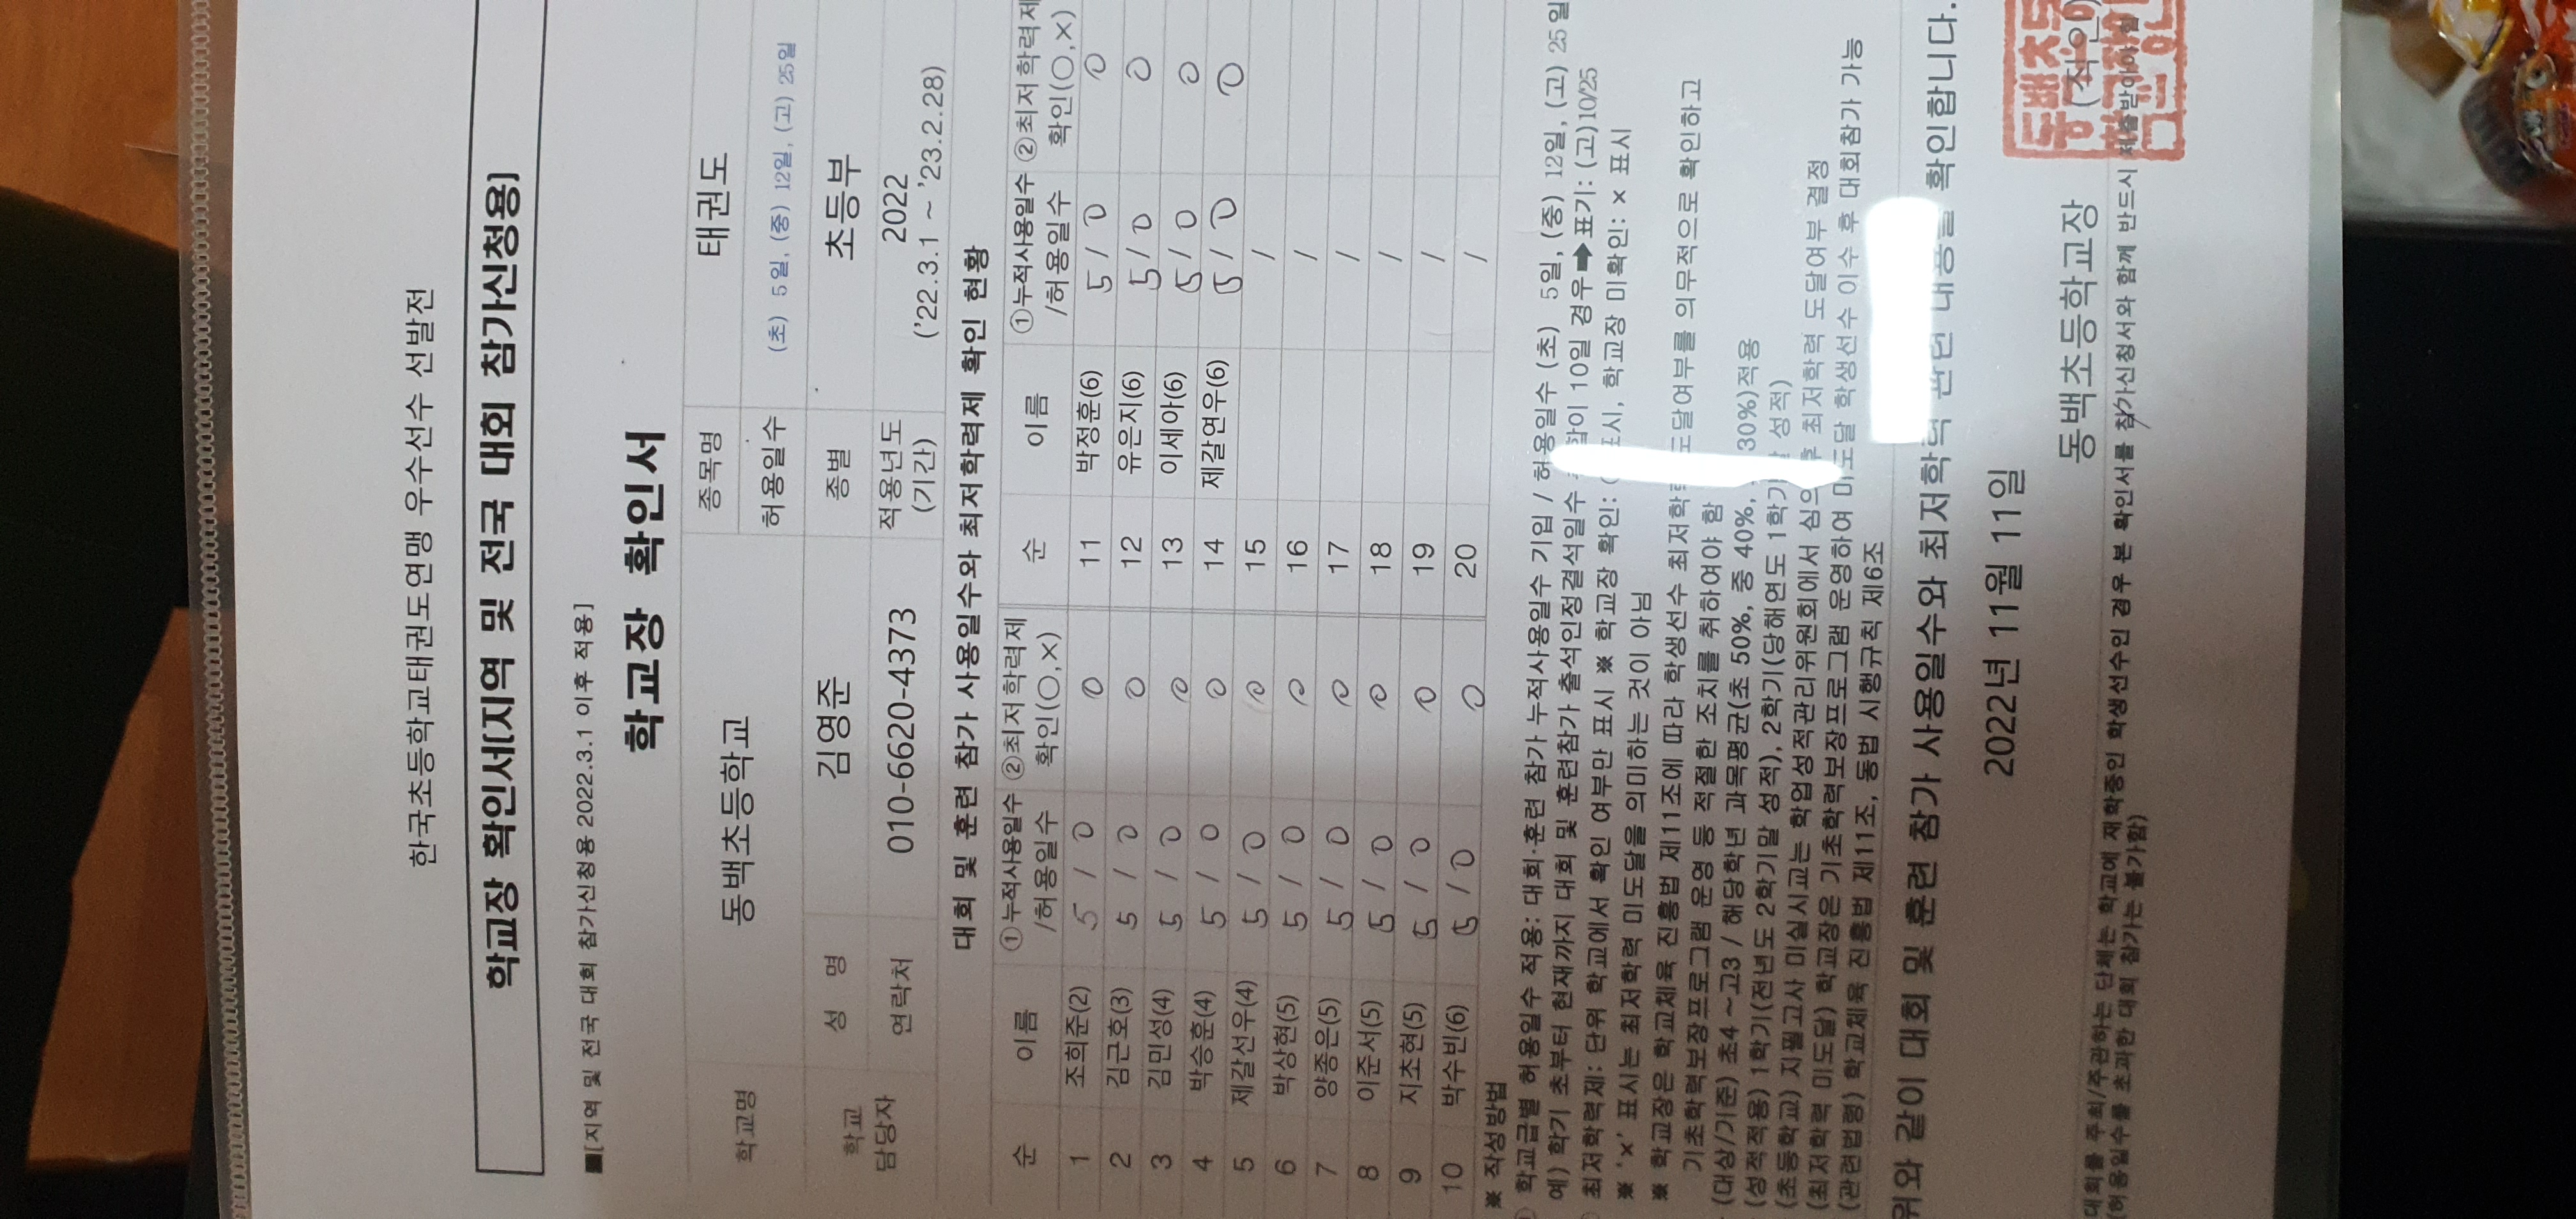 한국초등학교태권도연맹 우수선수 선발전
학교장 확인서[지역 및 전국 대회 참가신청용]
■[지역 및 전국 대회 참가신청용 2022.3.1 이후 적용]
학교장 확인서
학교명 동백초등학교 종목명 태권도
허용일수 (초) 5일, (중) 12일, (고) 25일
학교 담당자 성 명 김영준 종별 초등부
연락처 010-6620-4373 적용년도 (기간) 2022 ('22.3.1 ~ '23.2.28)
대회 및 훈련 참가 사용일수와 최저학력제 확인 현황
순 이름 ①누적사용일수 /허용일수 ②최저학력제 확인(○,×) 순 이름 ①누적사용일수 /허용일수 ②최저학력제 확인(○,×)
1 조희준(2) 5 / 0 0 11 박정훈(6) 5 / 0 0
2 김근호(3) 5 / 0 0 12 유은지(6) 5 / 0 0
3 김민성(4) 5 / 0 0 13 이세아(6) 5 / 0 0
4 박승훈(4) 5 / 0 0 14 제갈연우(6) 5 / 0 0
5 제갈선우(4) 5 / 0 0 15 /
6 박상현(5) 5 / 0 0 16 /
7 양종은(5) 5 / 0 0 17 /
8 이준서(5) 5 / 0 0 18 /
9 지초현(5) 5 / 0 0 19 /
10 박수빈(6) 5 / 0 0 20 /
※ 작성방법
학교급별 허용일수 적용: 대회·훈련 참가 누적사용일수 기입 / 허용일수 (초) 5일, (중) 12일, (고) 25일
예) 학기 초부터 현재까지 대회 및 훈련참가 출석인정결석일수 합이 10일 경우 ➡ 표기: (고)10/25
최저학력제: 단위 학교에서 확인 여부만 표시 ※ 학교장 확인: 표시, 학교장 미확인: × 표시
※ '×' 표시는 최저학력 미도달을 의미하는 것이 아님
※ 학교장은 학교체육 진흥법 제11조에 따라 학생선수 최저학력 도달여부를 의무적으로 확인하고
기초학력보장프로그램 운영 등 적절한 조치를 취하여야 함
(대상/기준) 초4 ~고3 / 해당학년 과목평균(초 50%, 중 40%, 30%)적용
(성적적용) 1학기(전년도 2학기말 성적), 2학기(당해연도 1학기 성적)
(초등학교) 지필고사 미실시교는 학업성적관리위원회에서 심의 후 최저학력 도달여부 결정
(최저학력 미도달) 학교장은 기초학력보장프로그램 운영하여 미도달 학생선수 이수 후 대회참가 가능
(관련법령) 학교체육 진흥법 제11조, 동법 시행규칙 제6조
위와 같이 대회 및 훈련 참가 사용일수와 최저학력 관련 내용을 확인합니다.
2022년 11월 11일
동백초등학교장 (직인)
대회를 주최/주관하는 단체는 학교에 재학중인 학생선수인 경우 본 확인서를 참가신청서와 함께 반드시 제출받아야 함
(허용일수를 초과한 대회 참가는 불가함)